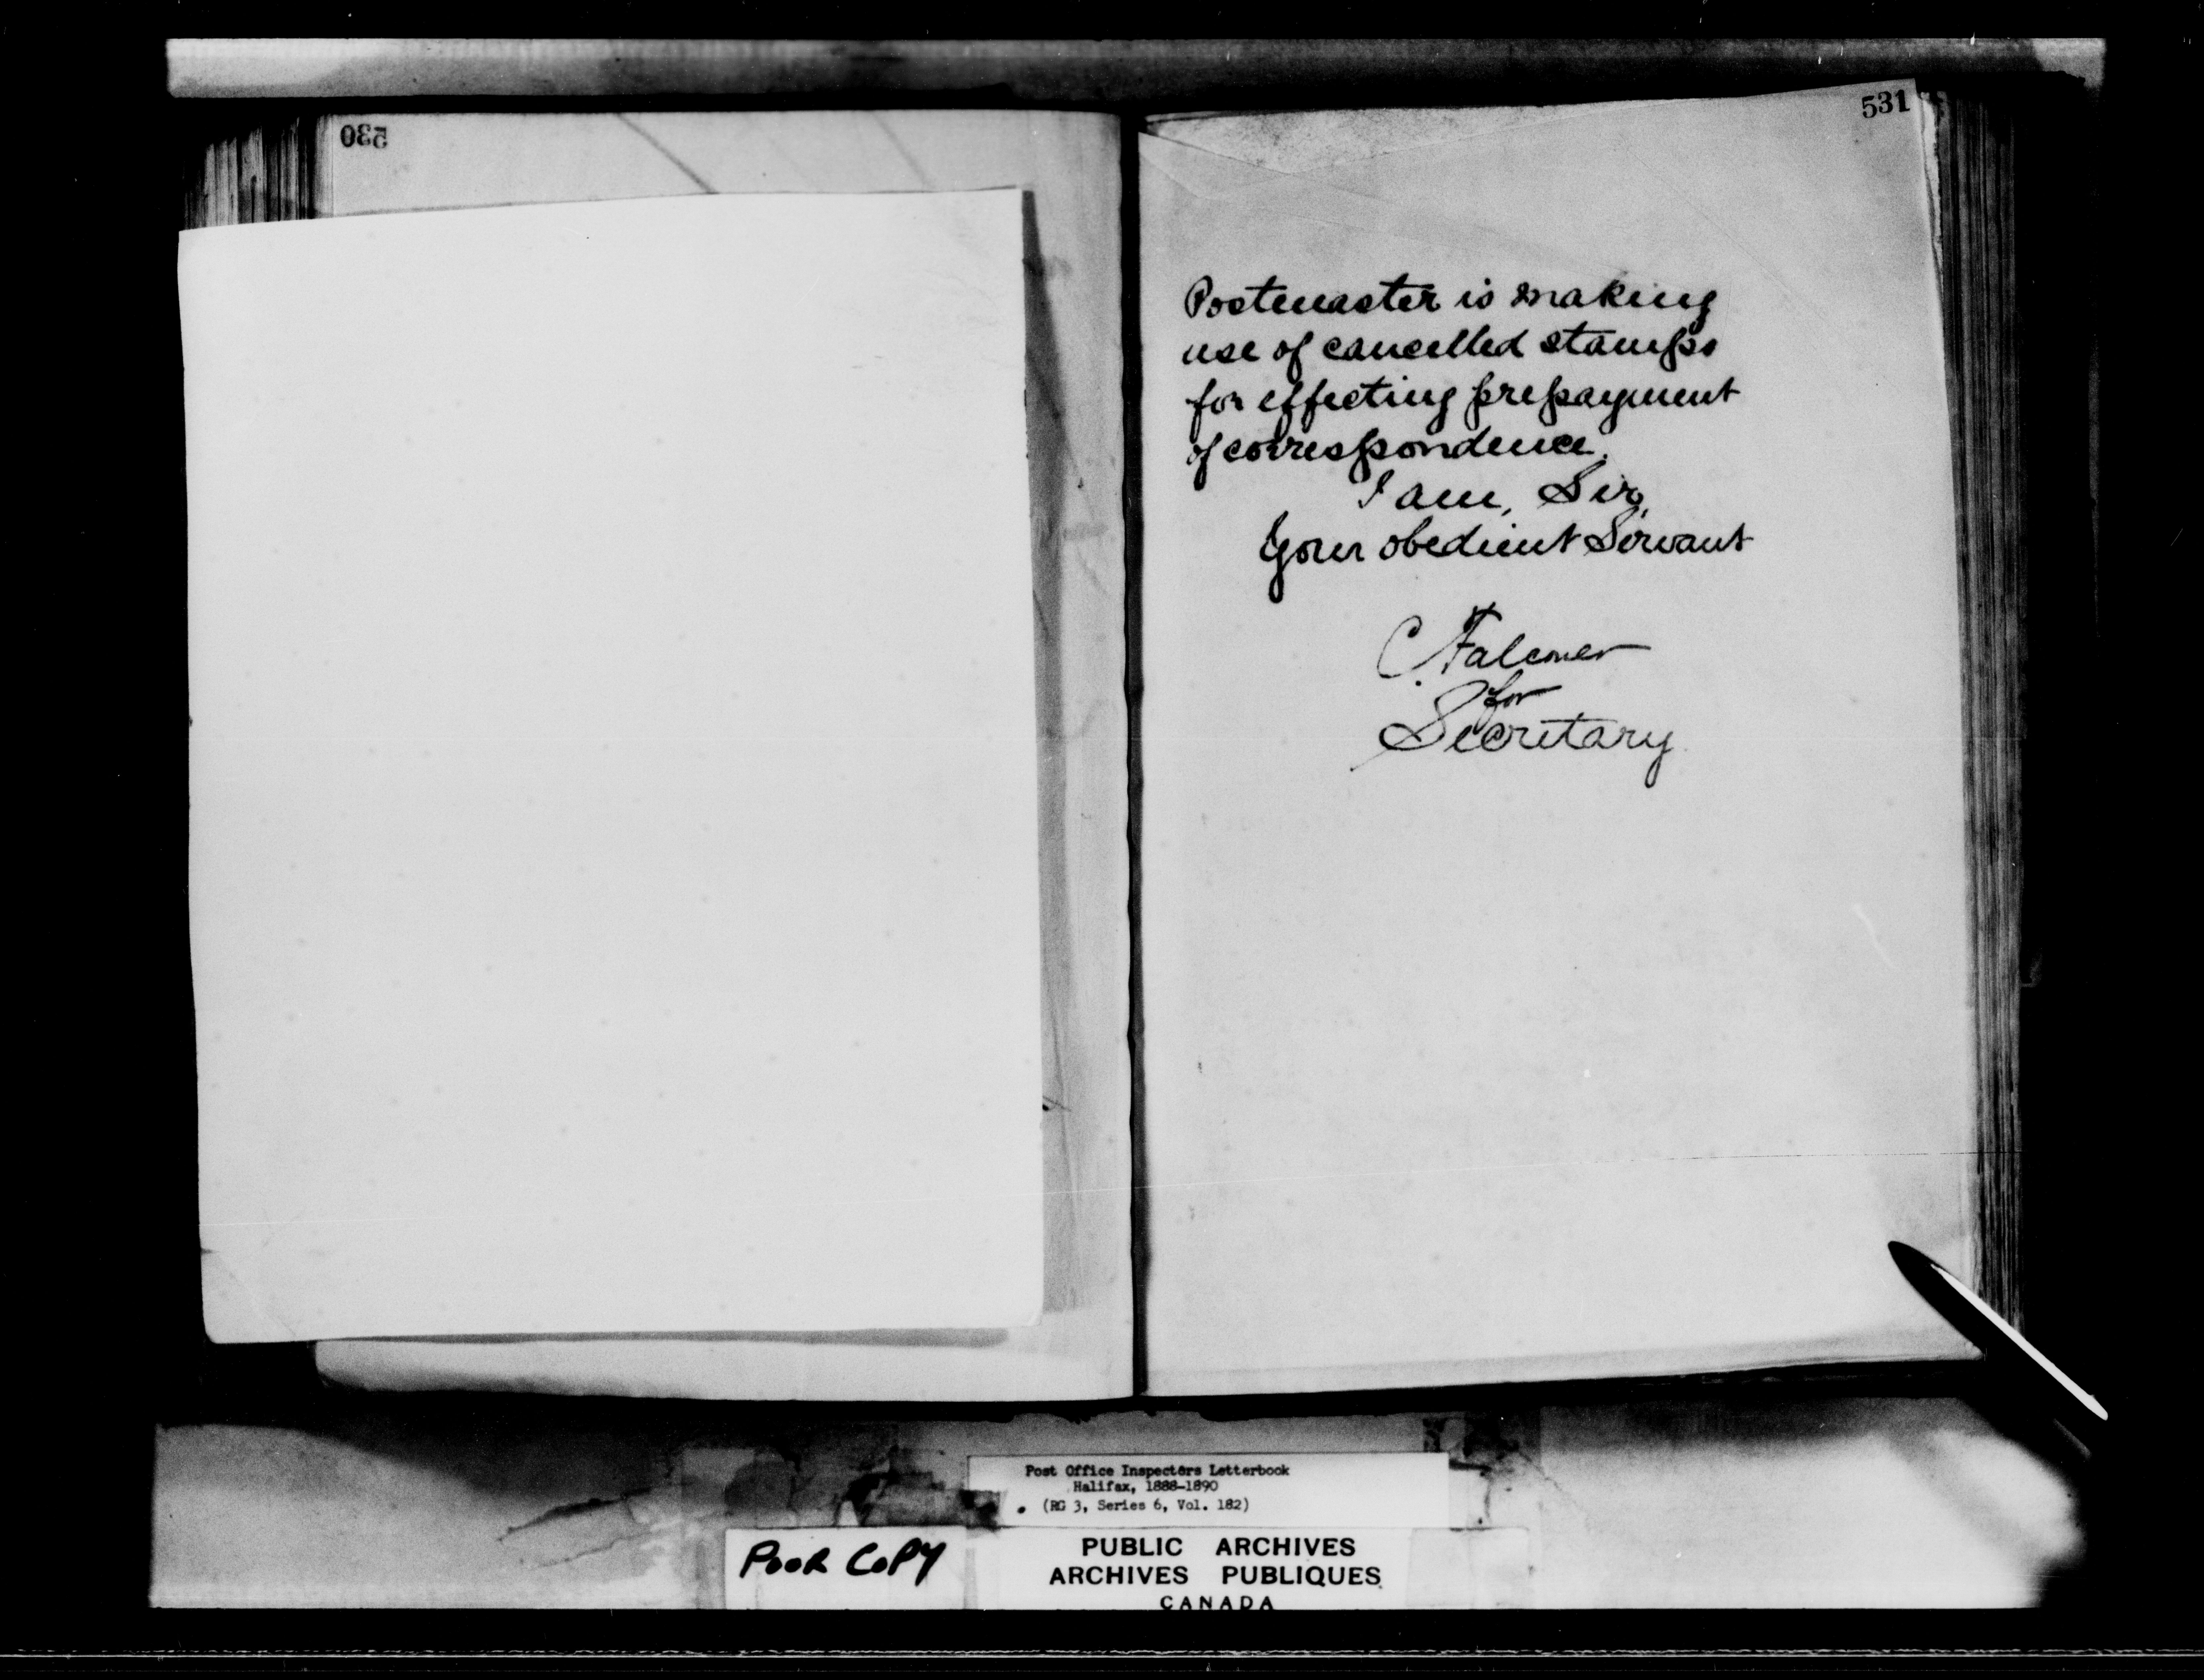 530
531
Postmaster is making
use of cancelled stamps
for effecting prepayment
of correspondence.
I am, Sir,
Your obedient Servant
C. Falconer
for
Secretary
Post Office Inspectors Letterbook
Halifax, 1888-1890
(RG 3, Series 6, Vol. 182)
POOR COPY
PUBLIC ARCHIVES
ARCHIVES PUBLIQUES
CANADA